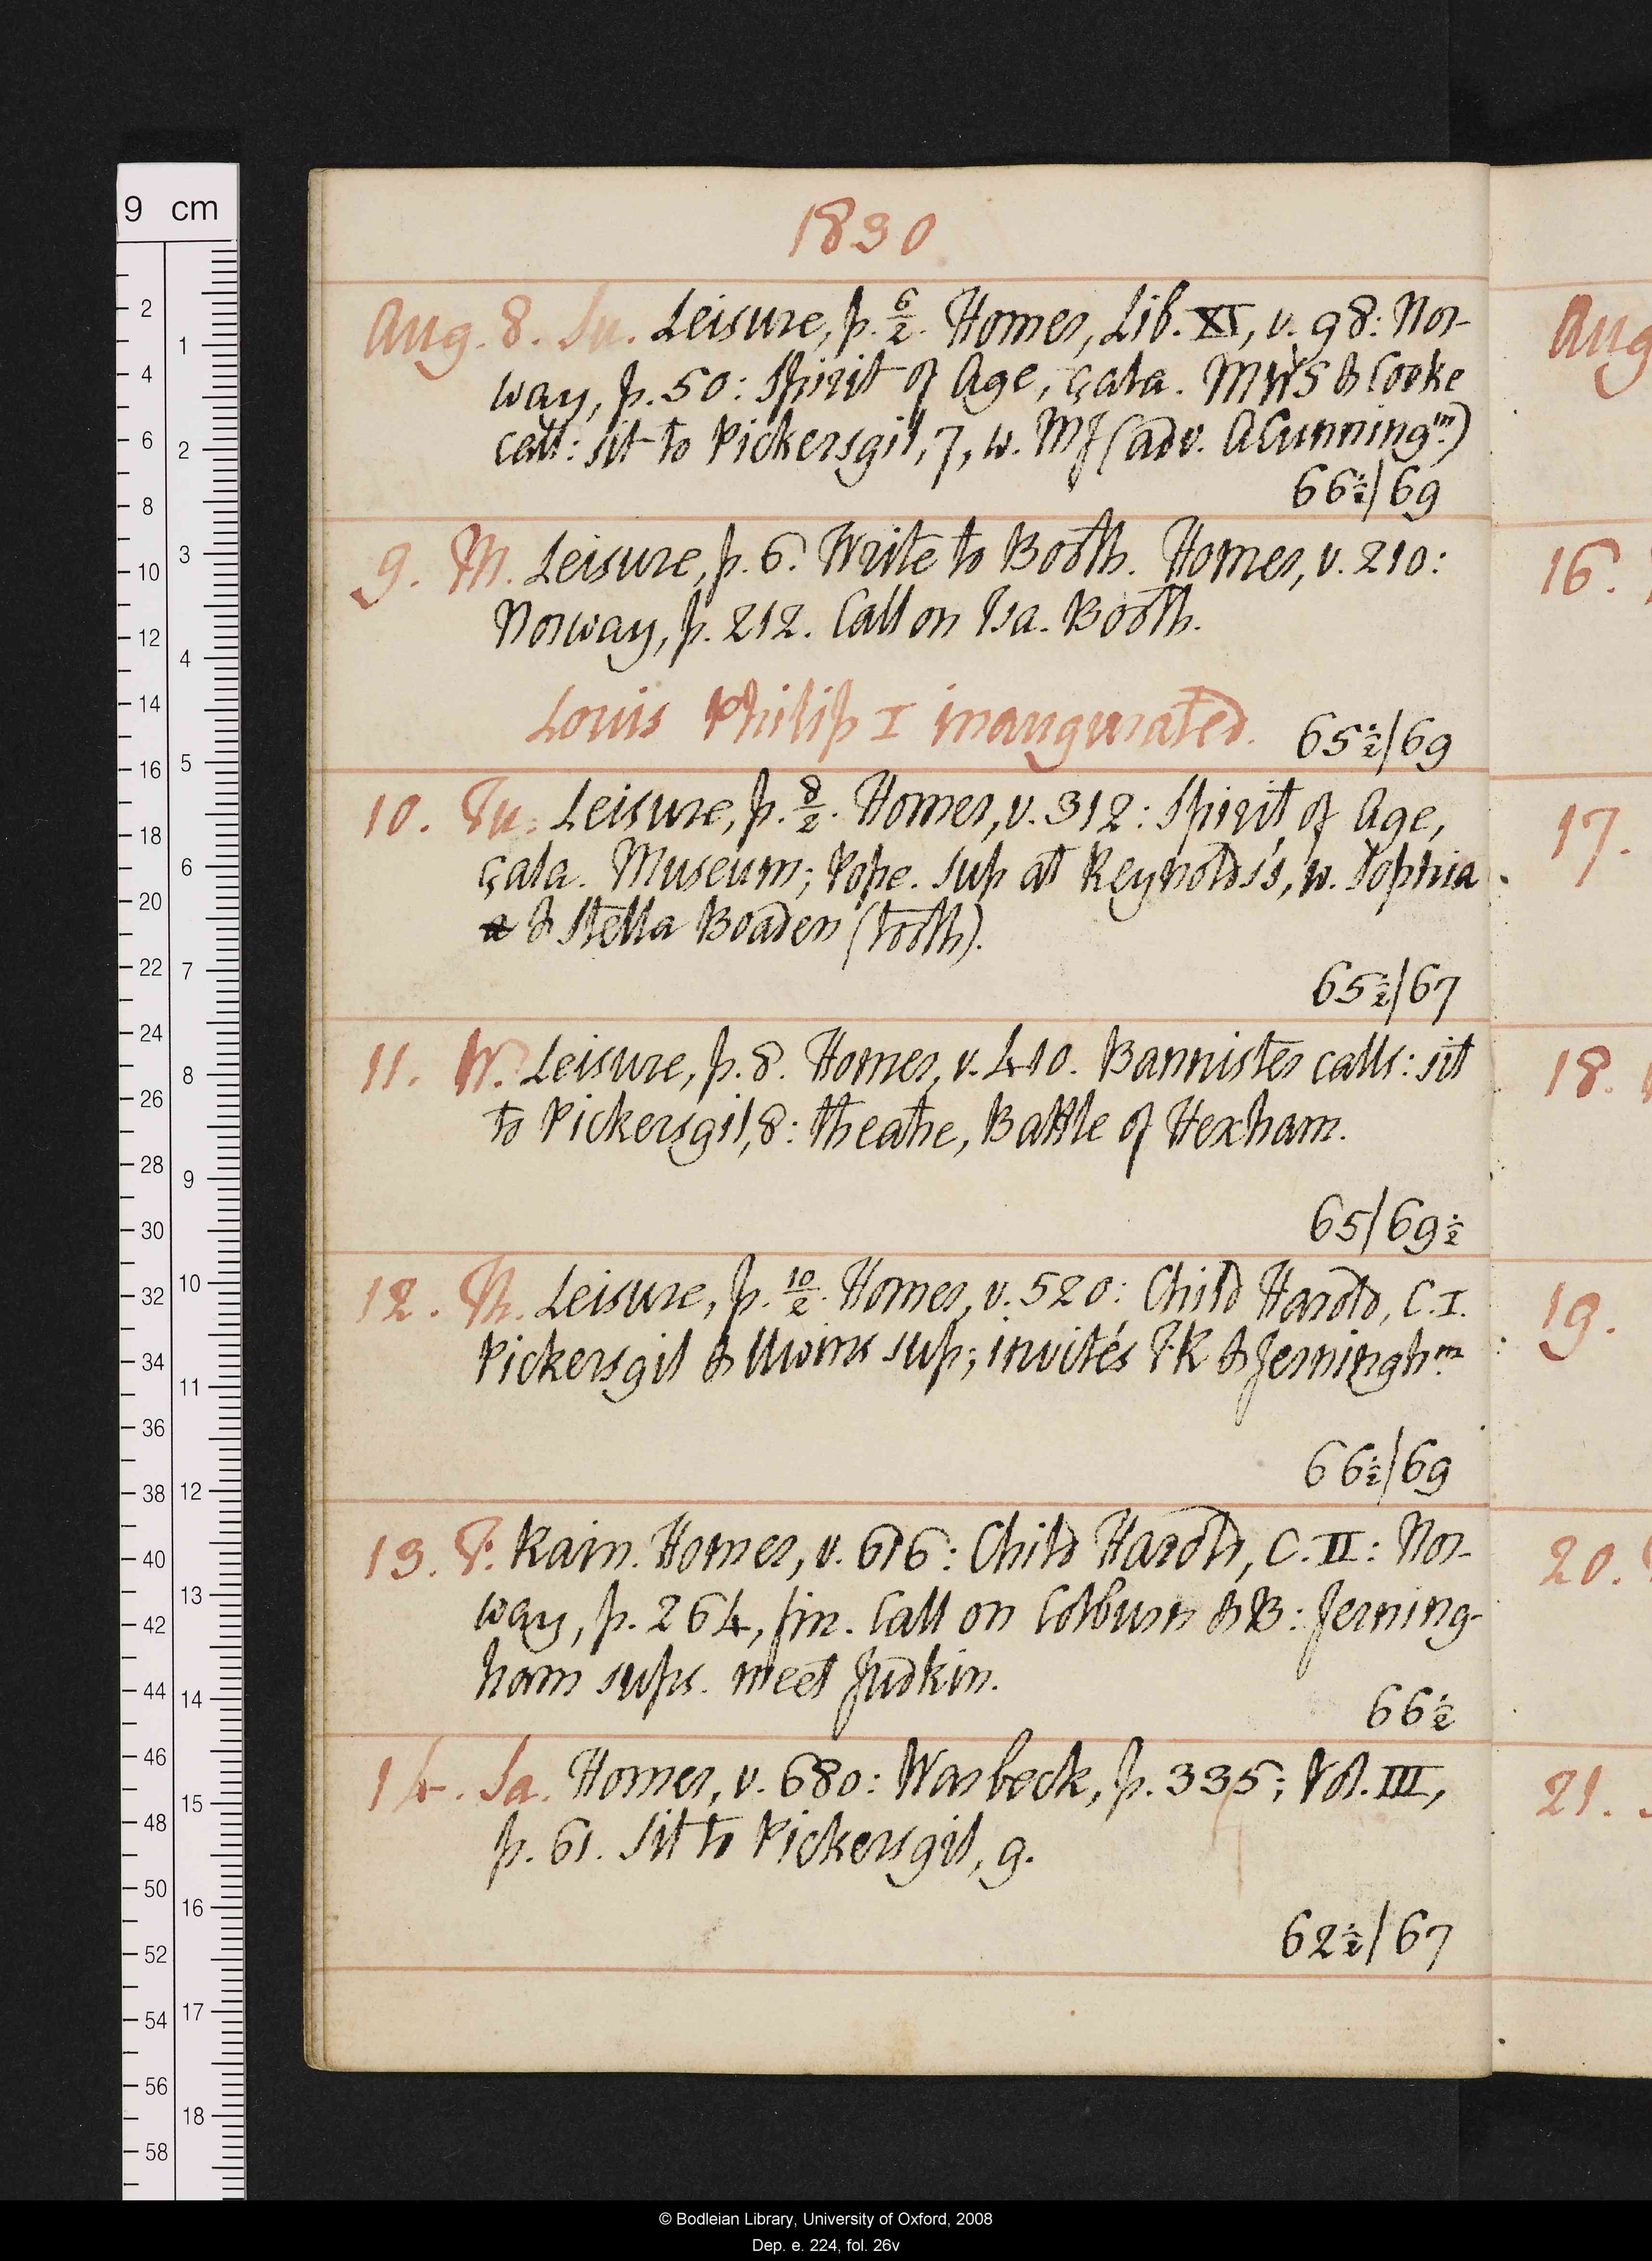 9 cm
1830
Aug. 8. Su. Leisure, p. 6/2. Homer, Lib. XI, v. 98: Nor-
way, p. 50: Spirit of Age, çala. MWS & Cooke
call: sit to Pickersgil, 7, w. MJ (adv. ACunningm)
66½/69
9. M. Leisure, p. 6. Write to Booth. Homer, v. 210:
Norway, p. 212. Call on Isa. Booth.
Louis Philip I inaugurated. 65½/69
10. Tu. Leisure, p. 8/2. Homer, v. 312: Spirit of Age,
çala. Museum; Pope. Sup at Reynolds's, w. Sophia
& Stella Boaden (tooth).
65½/67
11. W. Leisure, p. 8. Homer, v. 410. Bannister calls: sit
to Pickersgil, 8: theatre, Battle of Hexham.
65/69½
12. Th. Leisure, p. 10/2. Homer, v. 520: Child Harold, C. I.
Pickersgil & Uwins sup; invités FK & Jerninghm
66½/69
13. F. Rain. Homer, v. 616: Child Harold, C. II: Nor-
way, p. 264, fin. Call on Colburn & B: Jerning-
ham sups. meet Judkin.
66½
14. Sa. Homer, v. 680: Warbeck, p. 335; Vol. III,
p. 61. Sit to Pickersgil, 9.
62½/67
Aug
16.
17.
18.
19.
20.
21.
© Bodleian Library, University of Oxford, 2008
Dep. e. 224, fol. 26v